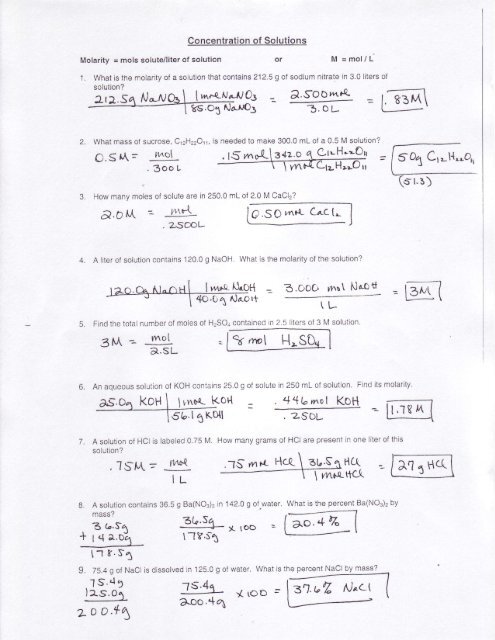 Concentration of Solutions
Molarity = mols solute/liter of solution or M = mol / L
1. What is the molarity of a solution that contains 212.5 g of sodium nitrate in 3.0 liters of
solution?
212.5g NaNO3 | 1 mole NaNO3 = 2.500 mole = .83M
85.0g NaNO3 3.0L
2. What mass of sucrose, C12H22O11, is needed to make 300.0 mL of a 0.5 M solution?
0.5M = mol .15 mol | 342.0 g C12H22O11 = 50g C12H22O11
.300L 1 mole C12H22O11 (51.3)
3. How many moles of solute are in 250.0 mL of 2.0 M CaCl2?
2.0M = mol 0.50 mole CaCl2
.2500L
4. A liter of solution contains 120.0 g NaOH. What is the molarity of the solution?
120.0g NaOH | 1 mole NaOH = 3.000 mol NaOH = 3M
40.0g NaOH 1L
5. Find the total number of moles of H2SO4 contained in 2.5 liters of 3 M solution.
3M = mol = 8 mol H2SO4
2.5L
6. An aqueous solution of KOH contains 25.0 g of solute in 250 mL of solution. Find its molarity.
25.0g KOH | 1 mole KOH = .446 mol KOH = 1.78 M
56.1g KOH .250L
7. A solution of HCl is labeled 0.75 M. How many grams of HCl are present in one liter of this
solution?
.75M = mol .75 mole HCl | 36.5g HCl = 27g HCl
1L 1 mole HCl
8. A solution contains 36.5 g Ba(NO3)2 in 142.0 g of water. What is the percent Ba(NO3)2 by
mass?
36.5g 36.5g x 100 = 20.4%
+ 142.0g 178.5g
178.5g
9. 75.4 g of NaCl is dissolved in 125.0 g of water. What is the percent NaCl by mass?
75.4g 75.4g x 100 = 37.6% NaCl
125.0g 200.4g
200.4g